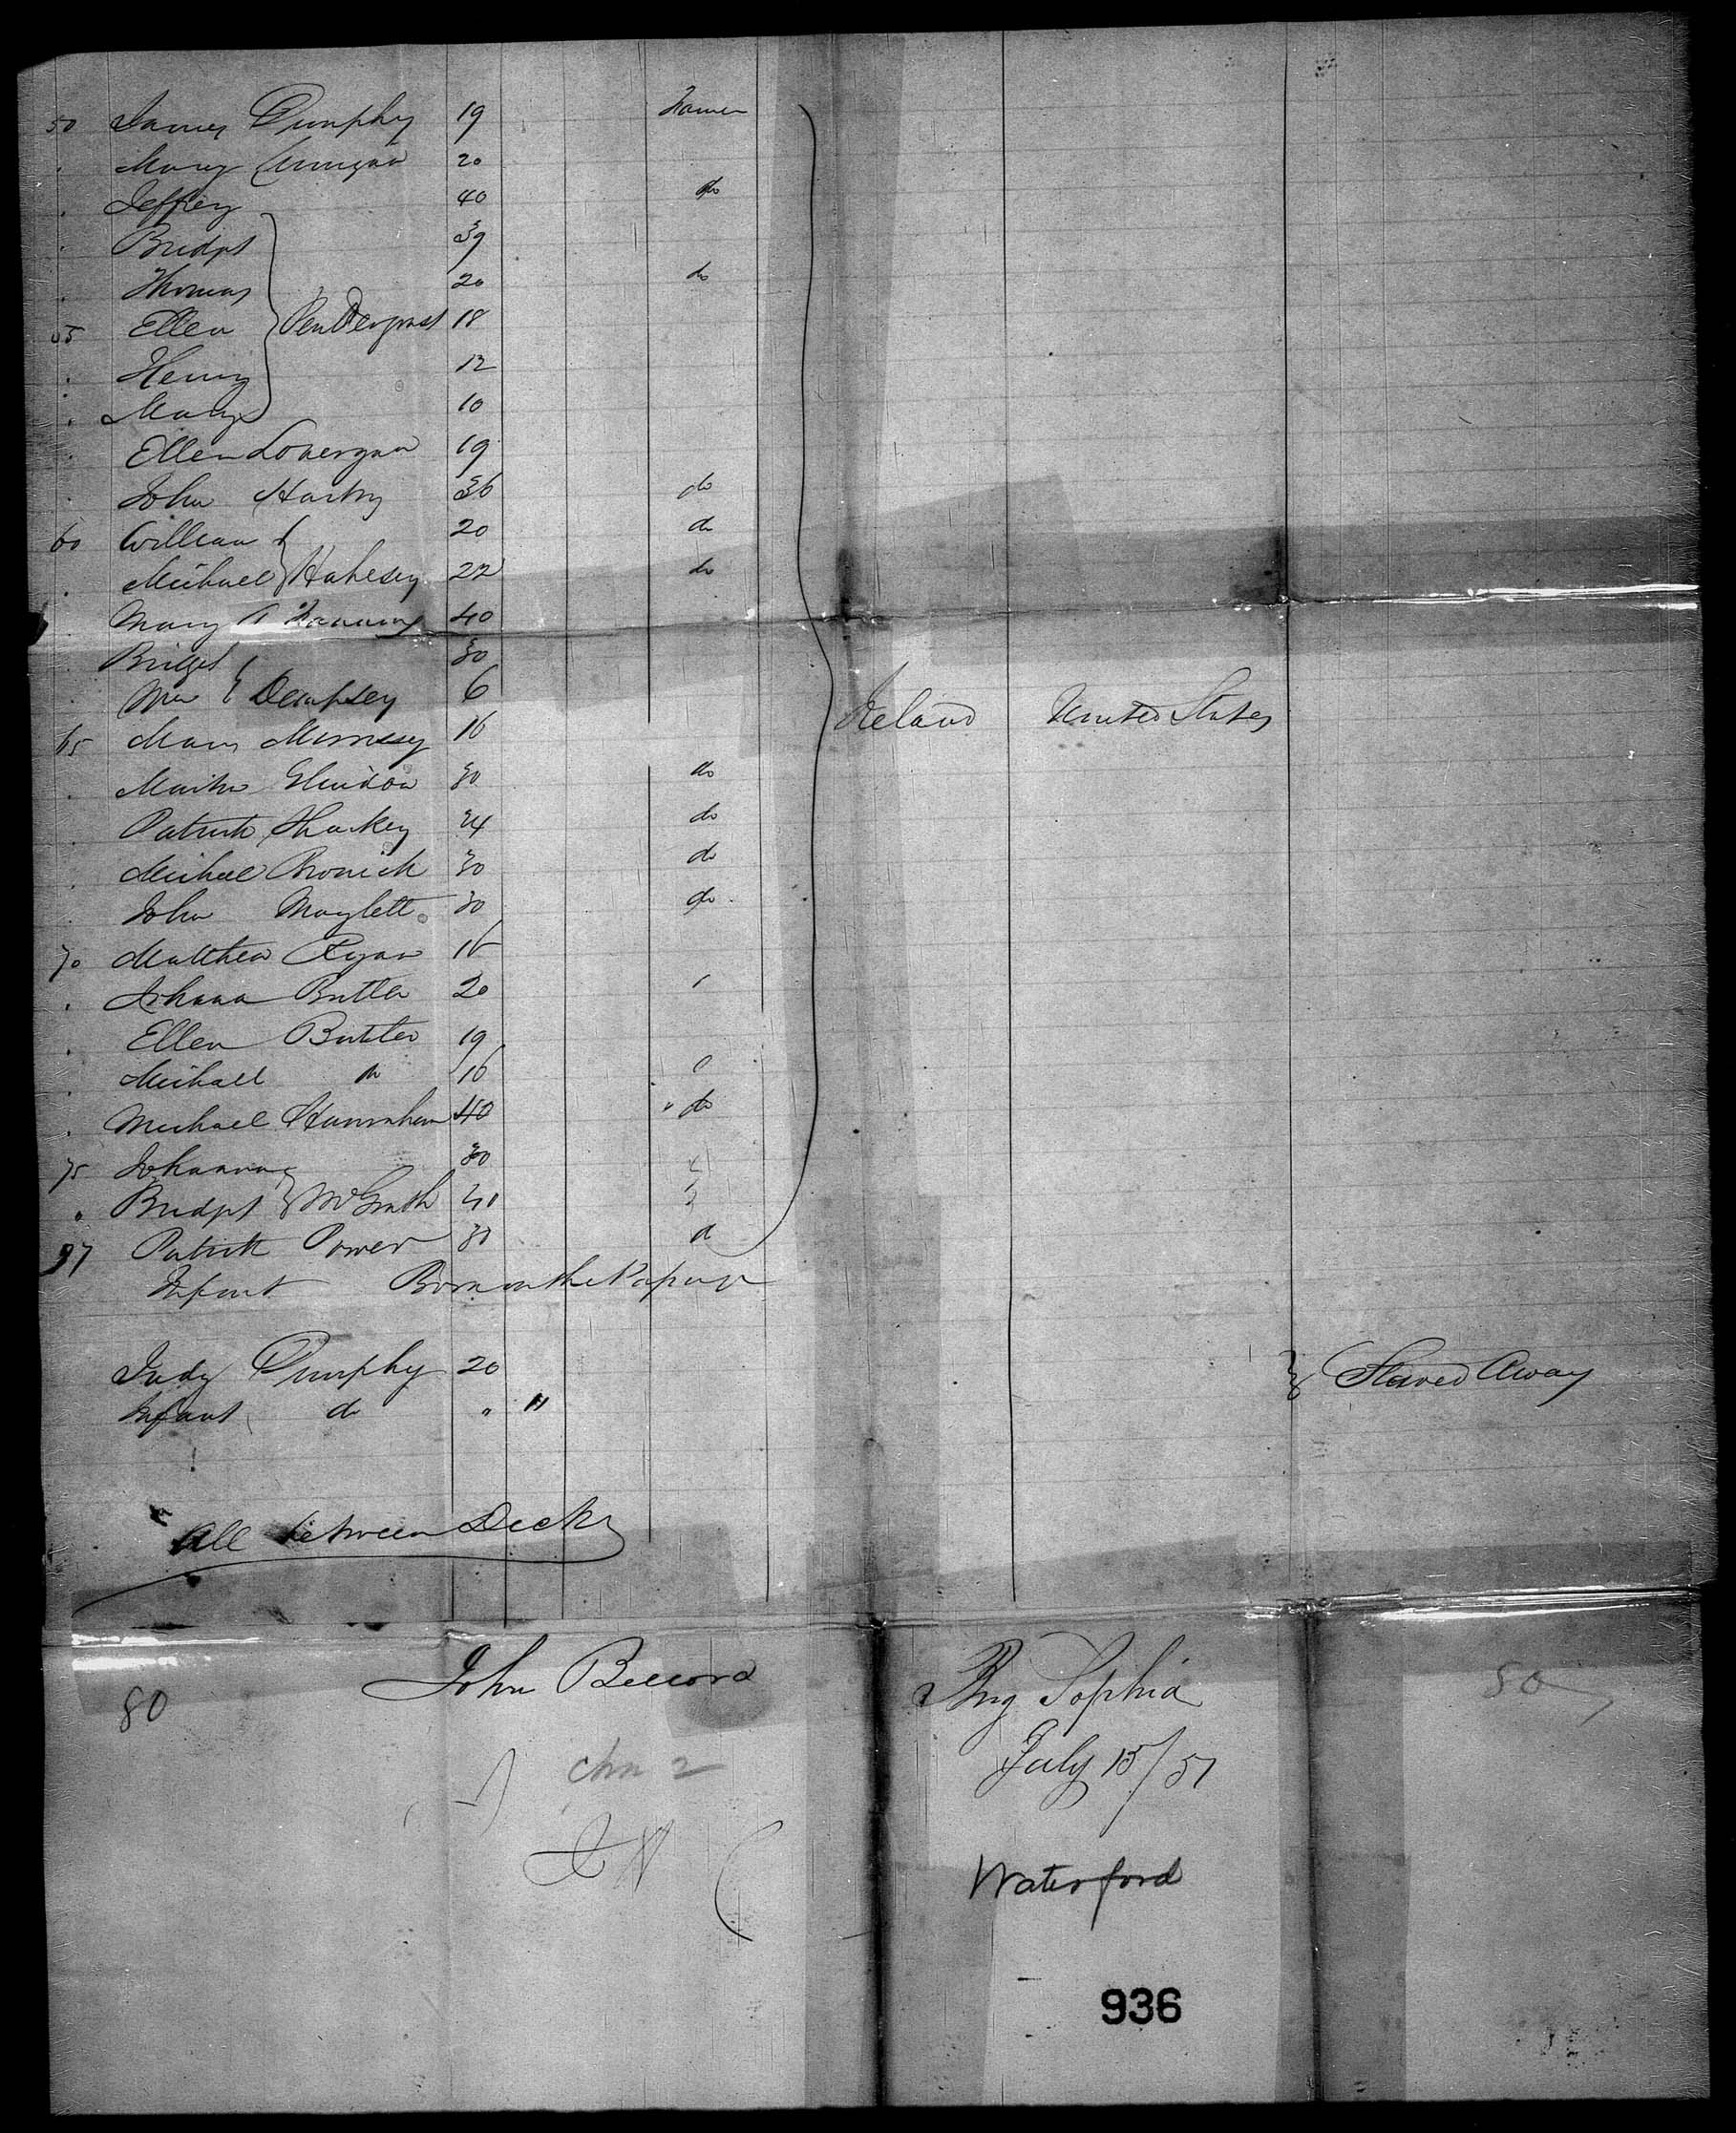 50 James Dunphy 19 Farmer
Mary 20
Jeffrey 40 do
Bridget 39
Thomas 20 do
55 Ellen } Pendergrast 18
Henry 12
Mary 10
Ellen Lonergan 19
John 36 do
60 William 20 do
Michael } Hahesey 22 do
Mary A Fanning 40
Bridget 30
Wm } Dempsey 6
Ireland United States
65 Mary 16
30 do
Patrick Sharkey 24 do
Michael 30 do
John Maylett 30 do
70 Matthew Ryan 16
Johana Butler 20
Ellen Butler 19
Michael do 16
Michael Hanrahan 40 " do
75 Johanna 30
Bridget } McGrath
77 Patrick Power 30 d
Infant Born on the Passage
Judy Dunphy 20 } Stowed Away
Infant do " "
All between Decks
John Record
Brig Sophia
80
80
July 15/51
chn 2
Waterford
936